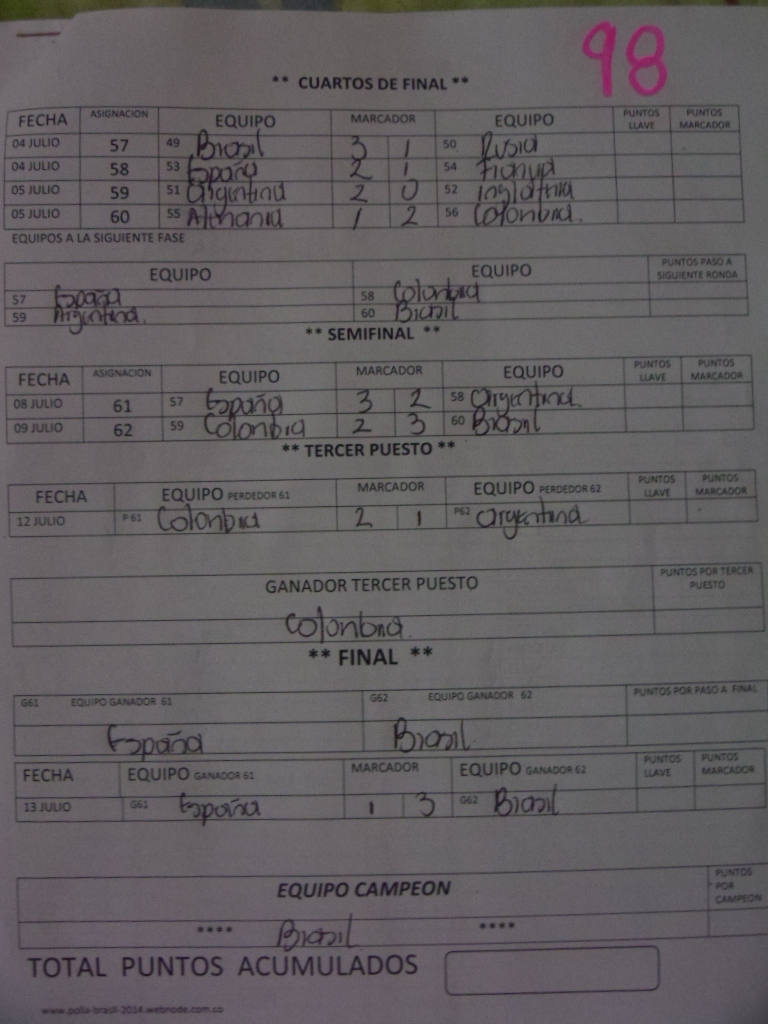 98
** CUARTOS DE FINAL **
FECHA ASIGNACION EQUIPO MARCADOR EQUIPO PUNTOS LLAVE PUNTOS MARCADOR
04 JULIO 57 49 Brasil 3 1 50 Rusia
04 JULIO 58 53 España 2 1 54
05 JULIO 59 51 Argentina 2 0 52 Inglatrria
05 JULIO 60 55 Almania 1 2 56 Colonbia.
EQUIPOS A LA SIGUIENTE FASE
EQUIPO EQUIPO PUNTOS PASO A SIGUIENTE RONDA
57 España 58 Colonbia
59 Argentina. 60 Brasil
** SEMIFINAL **
FECHA ASIGNACION EQUIPO MARCADOR EQUIPO PUNTOS LLAVE PUNTOS MARCADOR
08 JULIO 61 57 España 3 2 58 Argentina.
09 JULIO 62 59 Colonbia 2 3 60 Brasil
** TERCER PUESTO **
FECHA EQUIPO PERDEDOR 61 MARCADOR EQUIPO PERDEDOR 62 PUNTOS LLAVE PUNTOS MARCADOR
12 JULIO P 61 Colonbia 2 1 P62 Argentina
GANADOR TERCER PUESTO PUNTOS POR TERCER PUESTO
Colonbia.
** FINAL **
G61 EQUIPO GANADOR 61 G62 EQUIPO GANADOR 62 PUNTOS POR PASO A FINAL
España Brasil
FECHA EQUIPO GANADOR 61 MARCADOR EQUIPO GANADOR 62 PUNTOS LLAVE PUNTOS MARCADOR
13 JULIO G61 España 1 3 G62 Brasil
EQUIPO CAMPEON PUNTOS POR CAMPEON
**** Brasil ****
TOTAL PUNTOS ACUMULADOS
www.polla-brasil-2014.webnode.com.co